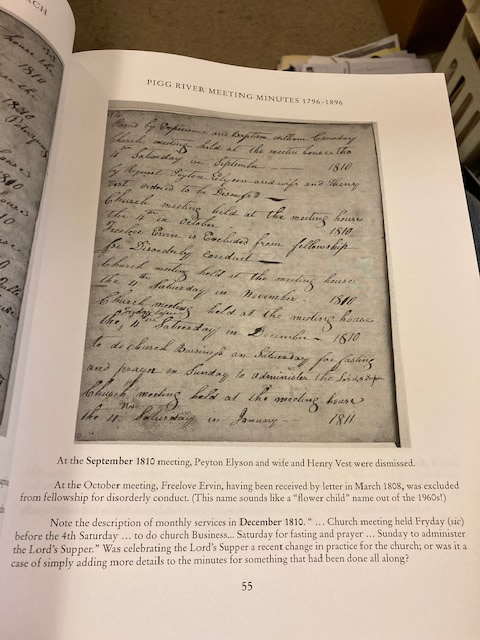 CH
PIGG RIVER MEETING MINUTES 1796-1896
Recd by Experience and Baptism William
Church meeting held at the meeting house the
4 Saturday in September 1810
by Request Peyton Elyson and wife and Henry
Vest ordered to be Dismissd
Church meeting held at the meeting house
the 4th in October 1810
Freelove Ervin is Excluded from fellowship
for Disorderly conduct
Church meeting held at the meeting house
the 4th Saturday in November 1810
Church meeting held at the meeting house
Fryday before
the 4th Saturday in December 1810
to do church Business on Saturday for fasting
and prayer on Sunday to administer the Lords Super
Church meeting held at the meeting house
the 4 Saturday in January 1811
At the September 1810 meeting, Peyton Elyson and wife and Henry Vest were dismissed.
At the October meeting, Freelove Ervin, having been received by letter in March 1808, was excluded
from fellowship for disorderly conduct. (This name sounds like a "flower child" name out of the 1960s!)
Note the description of monthly services in December 1810. " ... Church meeting held Fryday (sic)
before the 4th Saturday ... to do church Business... Saturday for fasting and prayer ... Sunday to administer
the Lord's Supper." Was celebrating the Lord's Supper a recent change in practice for the church; or was it a
case of simply adding more details to the minutes for something that had been done all along?
55